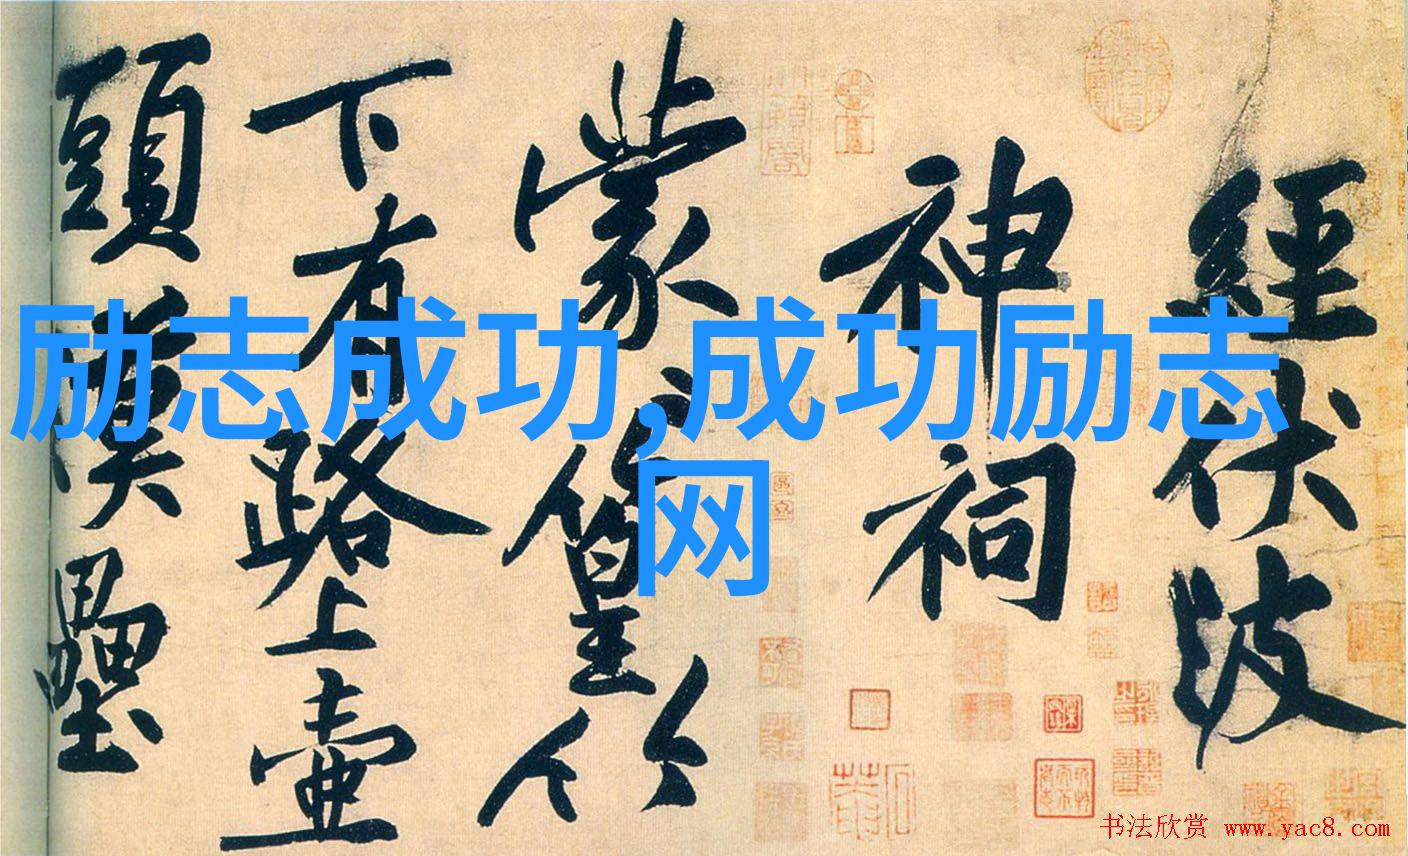 經伏波
神祠
蒙〻篁竹
下有路上壺
頭漢壘
励志成功,成功励志
网
书法欣赏 www.yac8.com